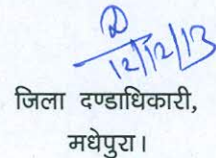 12/12/13
जिला दण्डाधिकारी,
मधेपुरा।